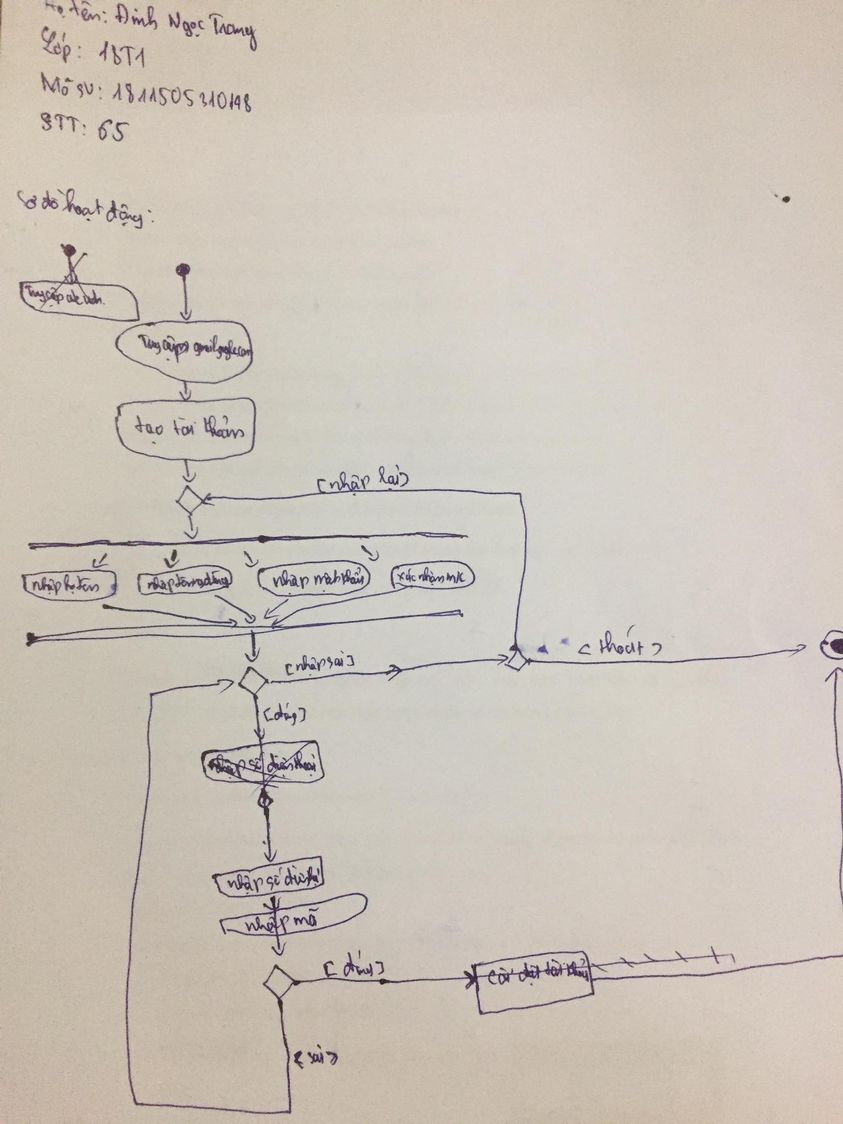 Họ tên: Đinh Ngọc Trang
Lớp: 18T1
Mã SV: 1811505310148
STT: 65
Sơ đồ hoạt động:
Truy cập
Truy cập gmail.google.com
tạo tài khoản
[nhập lại]
nhập họ tên
nhập tên người dùng
nhập mật khẩu
xác nhận mk
[nhập sai]
<thoát>
[đúng]
nhập số điện thoại
nhập số điện thoại
nhập mã
[đúng]
cài đặt tài khoản
[sai]